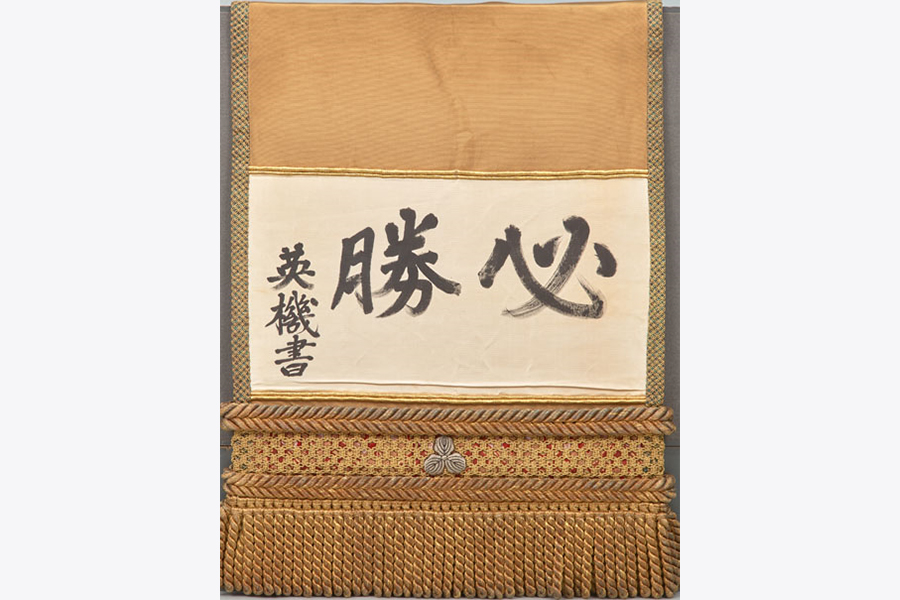 必勝
英機書